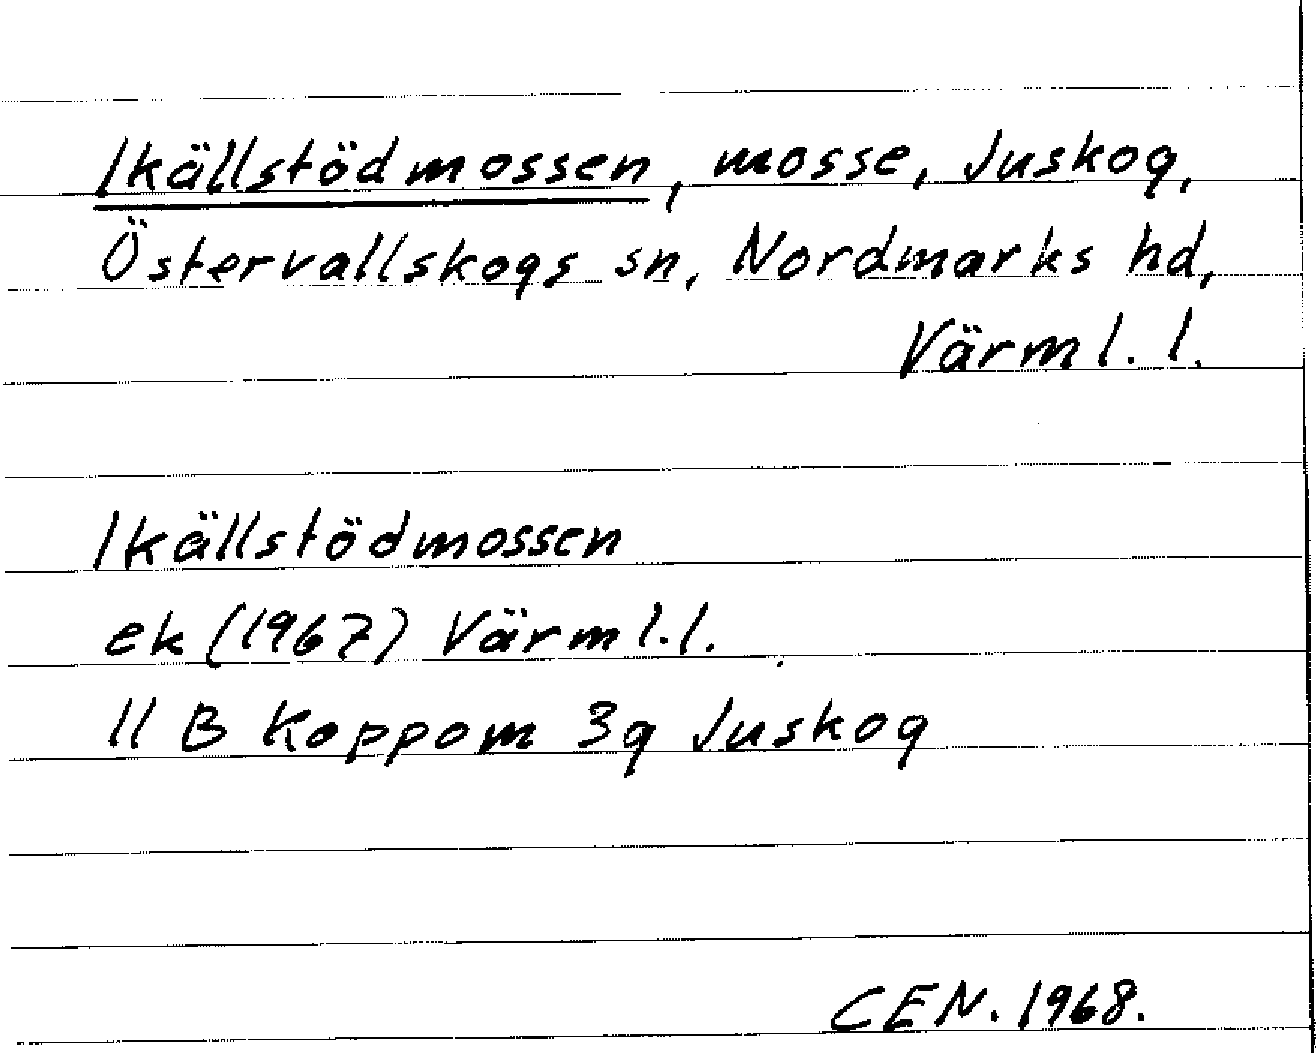 Ikällstödmossen, mosse, Juskog,
Östervallskogs sn, Nordmarks hd,
Värml. l.
Ikällstödmossen
ek (1967) Värml. l.
11 B Koppom 3g Juskog
CEN. 1968.